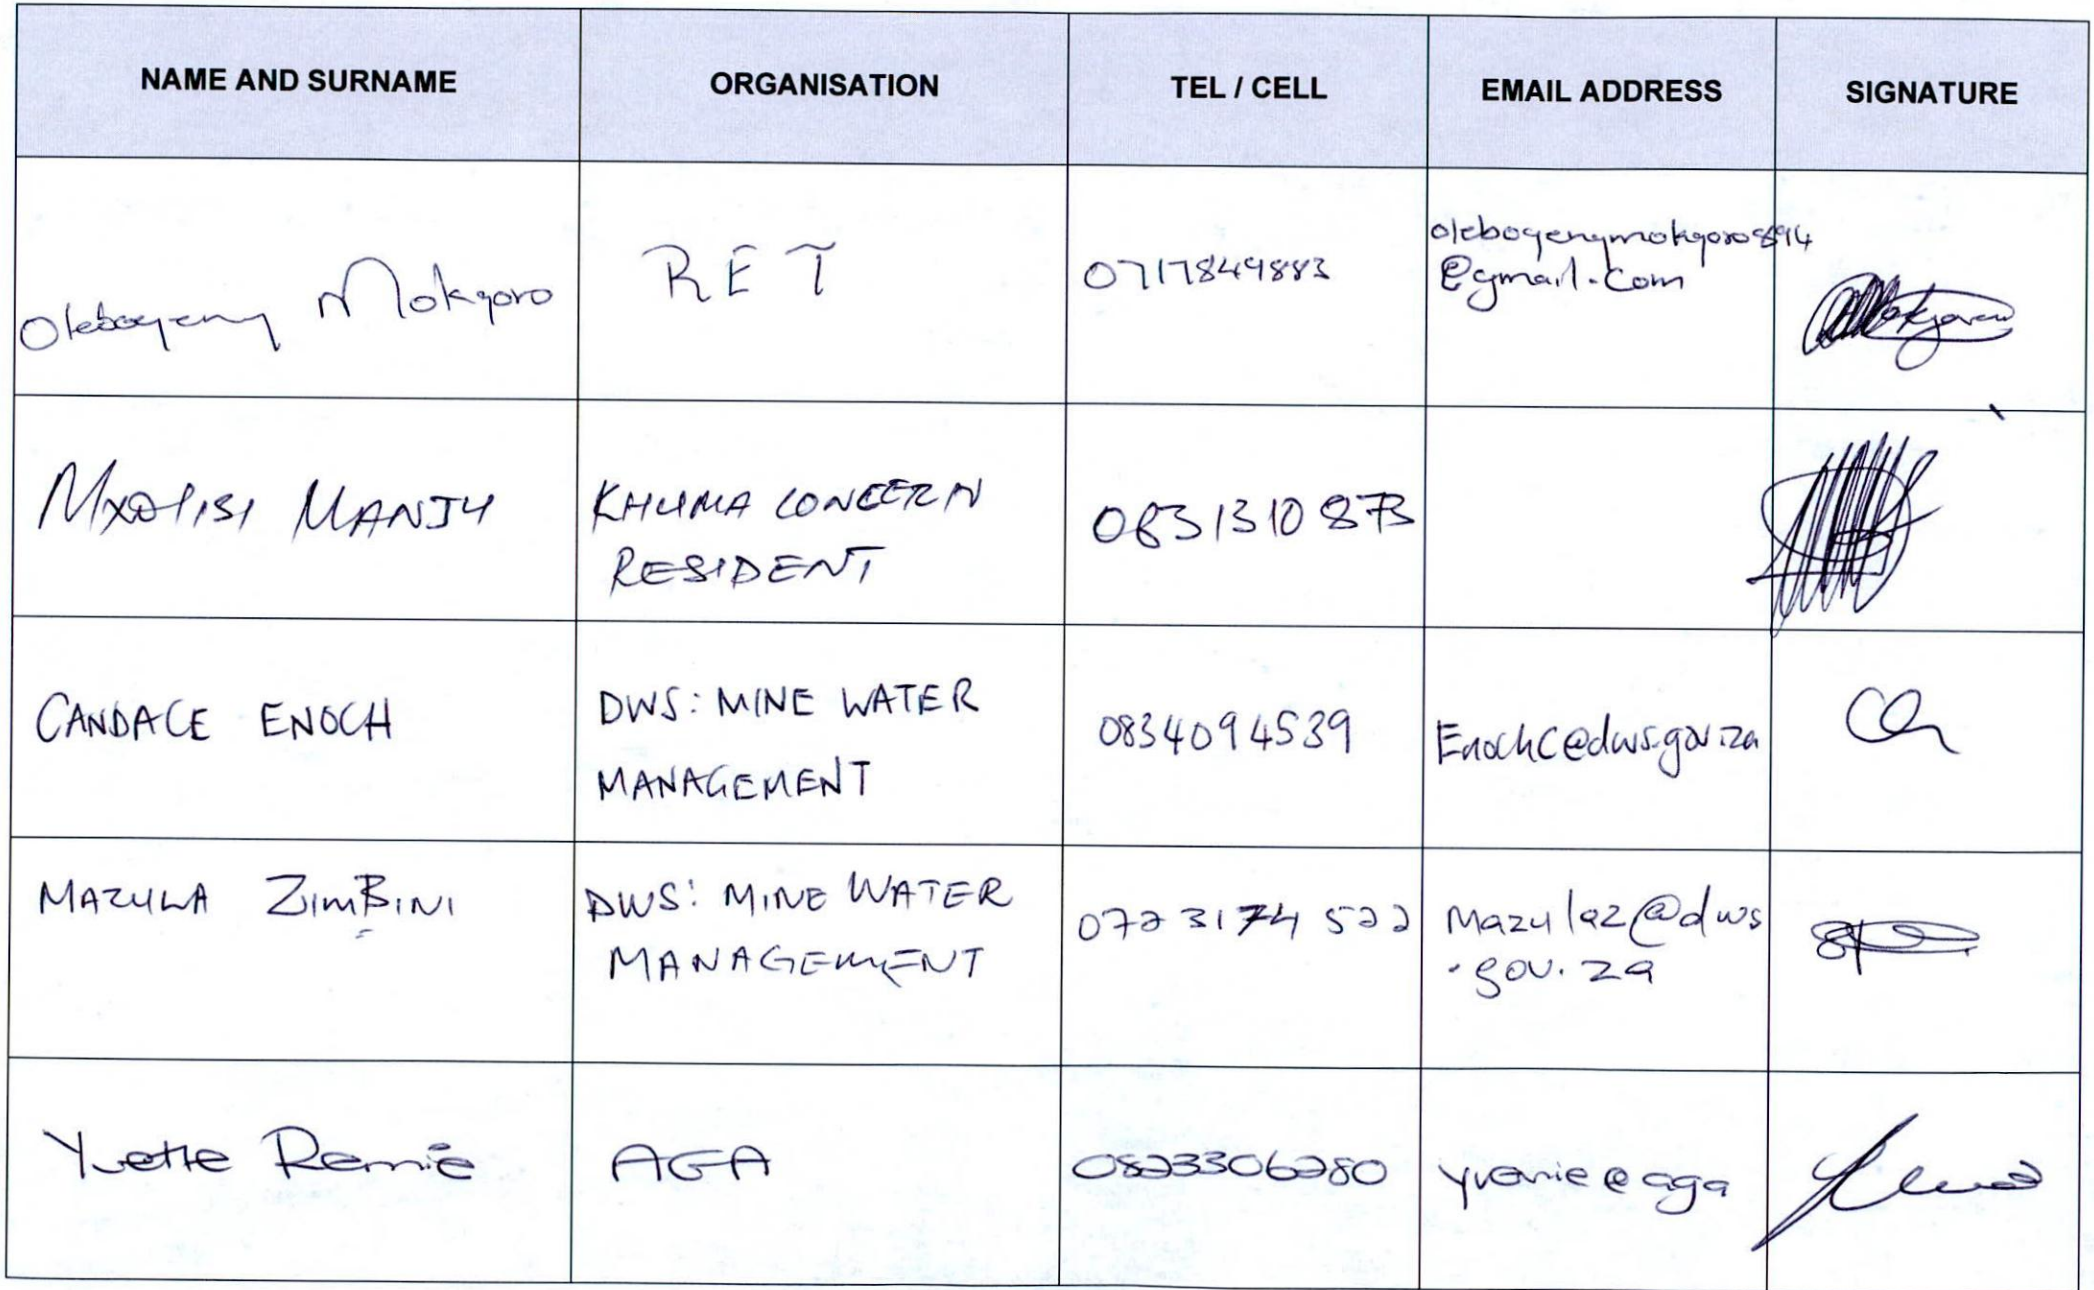 NAME AND SURNAME ORGANISATION TEL / CELL EMAIL ADDRESS SIGNATURE
Olebogeng Mokgoro RET 0717849883 olebogengmokgoro894
@gmail.com
Mxolisi MANJU KHUMA CONCERN 0831310873
RESIDENT
CANDACE ENOCH DWS: MINE WATER 0834094539 EnochC@dws.gov.za
MANAGEMENT
MAZULA ZIMBINI DWS: MINE WATER 0723174522 Mazulaz@dws
MANAGEMENT .gov.za
Yvette Remie AGA 0823306280 yremie@aga